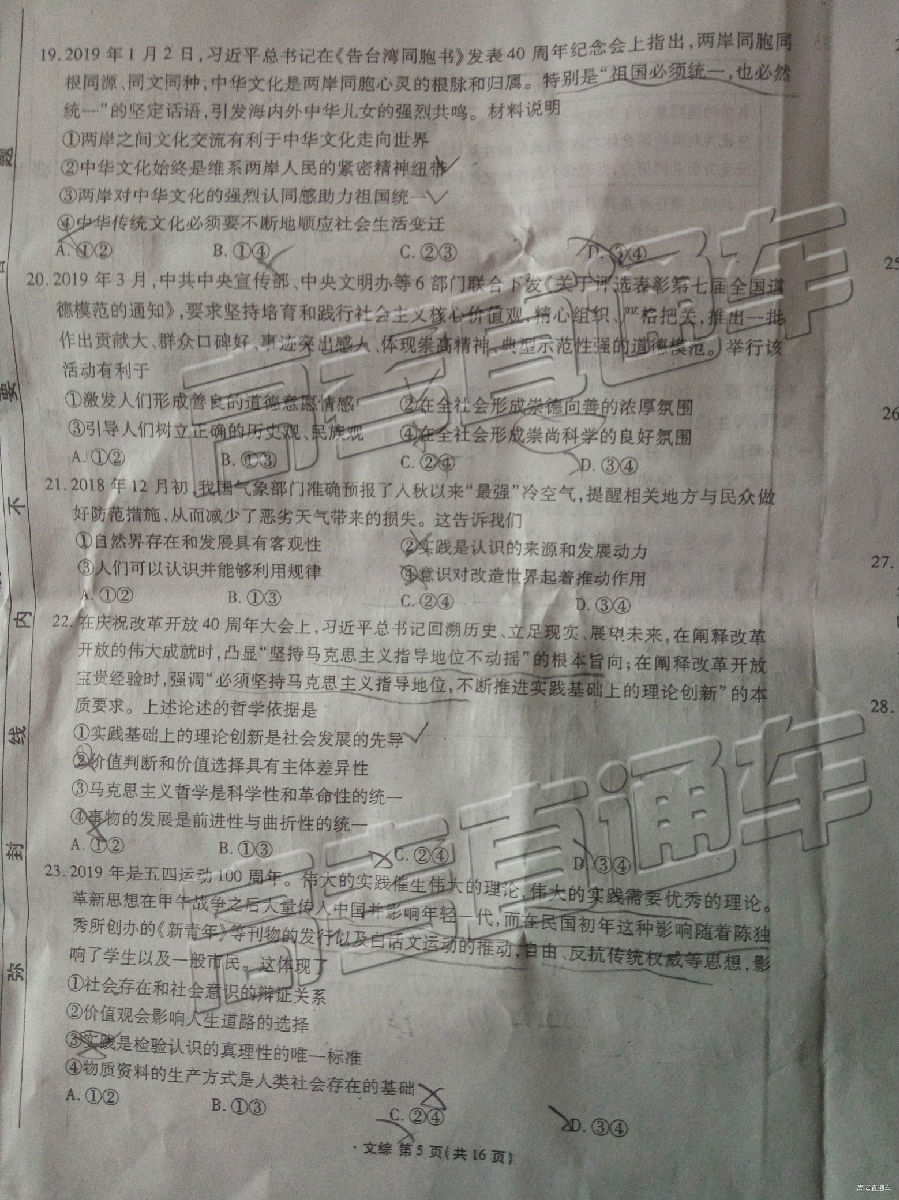 19.2019年1月2日,习近平总书记在《告台湾同胞书》发表40周年纪念会上指出,两岸同胞同
根同源、同文同种,中华文化是两岸同胞心灵的根脉和归属。特别是“祖国必须统一,也必然
统一”的坚定话语,引发海内外中华儿女的强烈共鸣。材料说明
①两岸之间文化交流有利于中华文化走向世界
②中华文化始终是维系两岸人民的紧密精神纽带
③两岸对中华文化的强烈认同感助力祖国统一
④中华传统文化必须要不断地顺应社会生活变迁
A.①② B.①④ C.②③ D.③④
20.2019年3月,中共中央宣传部、中央文明办等6部门联合下发《关于评选表彰第七届全国道
德模范的通知》,要求坚持培育和践行社会主义核心价值观,精心组织、严格把关,推出一批
作出贡献大、群众口碑好、事迹突出感人、体现崇高精神、典型示范性强的道德模范。举行该
活动有利于
①激发人们形成善良的道德意愿情感 ②在全社会形成崇德向善的浓厚氛围
③引导人们树立正确的历史观、民族观 ④在全社会形成崇尚科学的良好氛围
A.①② B.①③ C.②④ D.③④
21.2018年12月初,我国气象部门准确预报了入秋以来“最强”冷空气,提醒相关地方与民众做
好防范措施,从而减少了恶劣天气带来的损失。这告诉我们
①自然界存在和发展具有客观性 ②实践是认识的来源和发展动力
③人们可以认识并能够利用规律 ④意识对改造世界起着推动作用
A.①② B.①③ C.②④ D.③④
22.在庆祝改革开放40周年大会上,习近平总书记回溯历史、立足现实、展望未来,在阐释改革
开放的伟大成就时,凸显“坚持马克思主义指导地位不动摇”的根本旨向;在阐释改革开放
宝贵经验时,强调“必须坚持马克思主义指导地位,不断推进实践基础上的理论创新”的本
质要求。上述论述的哲学依据是
①实践基础上的理论创新是社会发展的先导
②价值判断和价值选择具有主体差异性
③马克思主义哲学是科学性和革命性的统一
④事物的发展是前进性与曲折性的统一
A.①② B.①③ C.②④ D.③④
23.2019年是五四运动100周年。伟大的实践催生伟大的理论,伟大的实践需要优秀的理论。
革新思想在甲午战争之后大量传入中国并影响年轻一代,而在民国初年这种影响随着陈独
秀所创办的《新青年》等刊物的发行以及白话文运动的推动,自由、反抗传统权威等思想,影
响了学生以及一般市民。这体现了
①社会存在和社会意识的辩证关系
②价值观会影响人生道路的选择
③实践是检验认识的真理性的唯一标准
④物质资料的生产方式是人类社会存在的基础
A.①② B.①③ C.②④ D.③④
·文综 第5页(共16页)
题
要
不
内
线
封
弥
26.
27.
28.
高考直通车
高考直通车
高考直通车